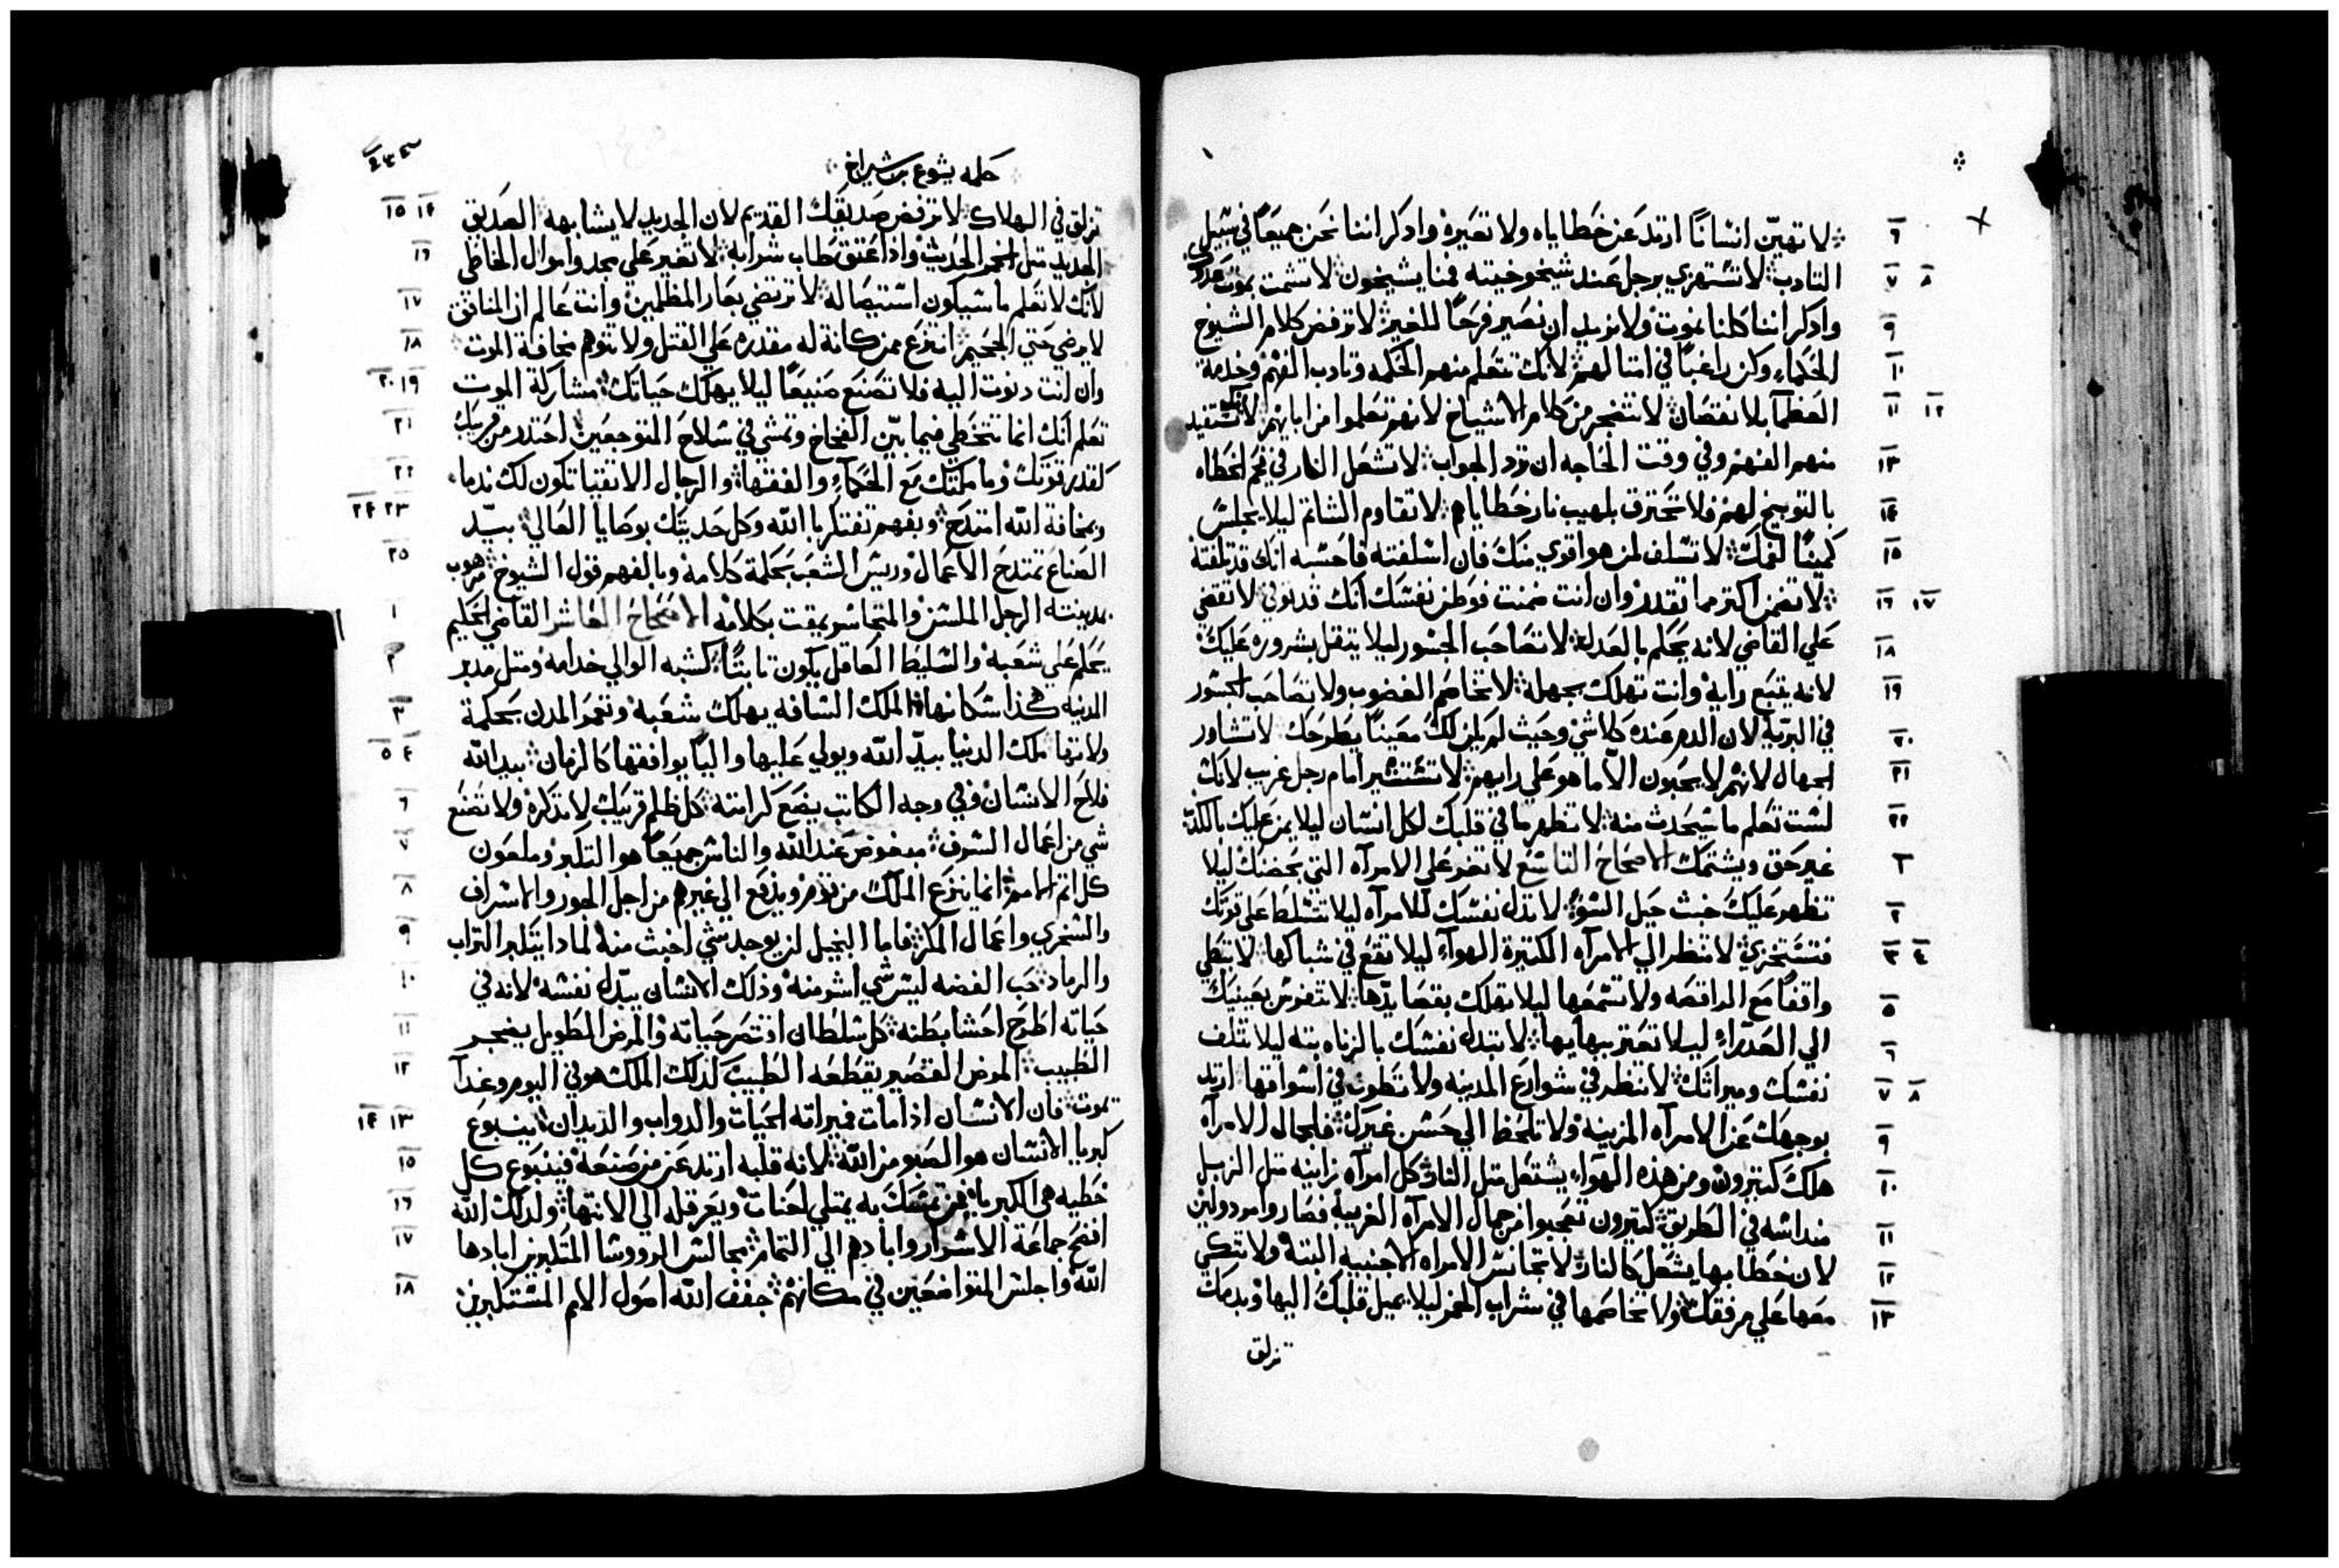 لا تهين انسانًا ارتد عن خطاياه ولا تعيره واذكر اننا نحن جميعًا في سبيل
التادب لا تستهزي برجل عند شيخوخيته فمنا يشيخون لا تشمت بموت عدوك
واذكر اننا كلنا نموت ولا نريد ان نصير فرحًا للغير لا ترفض كلام الشيوخ
الحكماء وكن راغبًا في امثالهم لانك تتعلم منهم الحكمه وتادب الفهم وخدمة
العظمآ بلا نقصان لا تتضجر من كلام الاشياخ لانهم تعلموا من ابايهم لانك تستفيد
منهم الفهم وفي وقت الحاجه ان ترد الجواب لا تشعل النار في فحم الخطاه
بالتوبيخ لهم فلا تحترق بلهيب نار خطاياهم لا تقاوم الشاتم ليلا يجلس
كمينًا لفمك لا تسلف لمن هو اقوي منك فان اسلفته فاحسبه انك قد تلفته
لا تضمن اكتر مما تقدر وان انت ضمنت فوطن نفسك انك قد توفي لا تقضي
علي القاضي لانه يحكم بالعدل لا تصاحب الجسور ليلا يتقل بشروره عليك
لانه يتبع رايه وانت تهلك بجهله لا تخاصم الغضوب ولا تصاحب الجسور
في البريه لان الدم عنده كلا شي وحيث لم يكن لك معينًا يطرحك لا تشاور
الجهال لانهم لا يحبون الا ما هو علي رايهم لا تستشير امام رجل غريب لانك
لست تعلم ما سيحدث منه لا تظهر ما في قلبك لكل انسان ليلا يمن عليك بالكذب
غير حق ويشتمك الاصحاح التاسع لا تغر علي الامرآه التي بحضنك ليلا
تظهر عليك خبث حيل السوء لا تذل نفسك للامرآه ليلا تتسلط علي قوتك
فتستخزي لا تنظر الي الامرآه الكتيرة الهوآء ليلا تقع في شباكها لا تبطي
واقفًا مع الراقصه ولا تسمعها ليلا تهلك بقصايدها لا تتفرس بعينيك
الي العدرآء ليلا تعتر ببهايها لا تبدل نفسك بالزناه بته ليلا تتلف
نفسك وميراتك لا تنظر في شوارع المدينه ولا تطوف في اسواقها ارتد
بوجهك عن الامرآه المزينه ولا تلحظ الي حسن غيرك فلجمال الامرآه
هلك كتيرون ومن هذه الهوآء يشتعل متل النار كل امرآه زانيه متل الزبل
منداسه في الطريق كتيرون تعجبوا من جمال الامرآه الغريبه فصاروا مردولين
لان خطابها يشعل كالنار لا تجالس الامراه الاجنبيه البتة ولا تتكي
معها علي مرفقك ولا تخاصمها في شراب الخمر ليلا يميل قلبك اليها وبدمك
تزلق
حكمه يشوع بن شيراخ
تزلق في الهلاك لا ترفض صديقك القديم لان الجديد لا يشابهه الصديق
الجديد متل الخمر الحديث واذا عتق طاب شرابه لا تغير علي مجد واموال الخاطي
لانك لا تعلم ما سيكون استيصاله لا ترتضي بعار المظلمين وانت عالم ان المنافق
لا يرضي حتي الجحيم انتزع ممن كانة له مقدره علي القتل ولا تتوهم مخافة الموت
وان انت دنوت اليه فلا تصنع صنيعًا ليلا يهلك حياتك مشاركة الموت
تعلم انك انما تتخطي فيما بين الفخاخ وتمشي في سلاح المتوجعين احتدر من قريبك
كقدر قوتك وما مكنتك مع الحكمآء والفقها والرجال الاتقيا تكون لك ندما
وبمخافة الله امتدح وبفهم تفتكر بالله وكل حديتك بوصايا العالي بيد
الصناع تمتدح الاعمال وريس الشعب بحكمة كلامه وبالفهم قول الشيوخ مرهوب
بمدينته الرجل الملسن والمتجاسر يمقت بكلامه الاصحاح العاشر القاضي الحكيم
يحكم علي شعبه والسليط العاقل يكون تابتًا كشبه الوالي خدامه ومتل مدبر
المدينه هكذا سكانها الملك السافه يهلك شعبه وتعمر المدن بحكمة
ولاتها ملك الدنيا بيد الله ويولي عليها واليًا يوافقها كالزمان بيد الله
فلاح الانسان وفي وجه الكاتب يضع كرامته كل ظلم قريبك لا تذكره ولا تصنع
شي من اعمال السرف مبغوض عند الله والناس جميعًا هو التكبر وملعون
كل اتم الامم انما ينزع الملك من قوم ويدفع الي غيرهم من اجل الجور والاسراف
والسخري واعمال المكر فاما البخيل لن يوجد شي اخبث منه لمادا يتكبر التراب
والرماد حب الفضه ليس شي اشر منه وذلك الانسان يبدل نفسه لانه في
حياته اطرح احشا بطنه كل سلطان اقتصر حياته والمرض الطويل يضجر
الطبيب المرض القصير يقطعه الطبيب كذلك الملك هو في اليوم وغدآ
يموت فان الانسان اذا مات فميراته الحيات والدواب والديدان ينبوع
كبريا الانسان هو الصبو من الله لانه قلبه ارتد عن من صنعه فينبوع كل
خطيه هي الكبريا فمن تمسك به يمتلي لعنات ويعرقله الي الانتها ولدلك الله
افضح جماعة الاشرار وابادهم الي التمام مجالس الرووسا المتكبرين ابادها
الله واجلس المتواضعين في مكانهم جفف الله اصول الامم المستكبرين